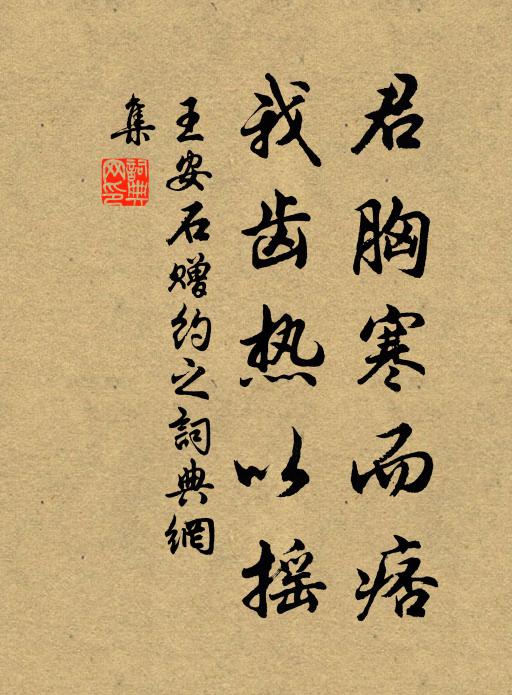 君胸寒而痞
我齿热以摇
王安石赠约之词典網
集
詞典
网印